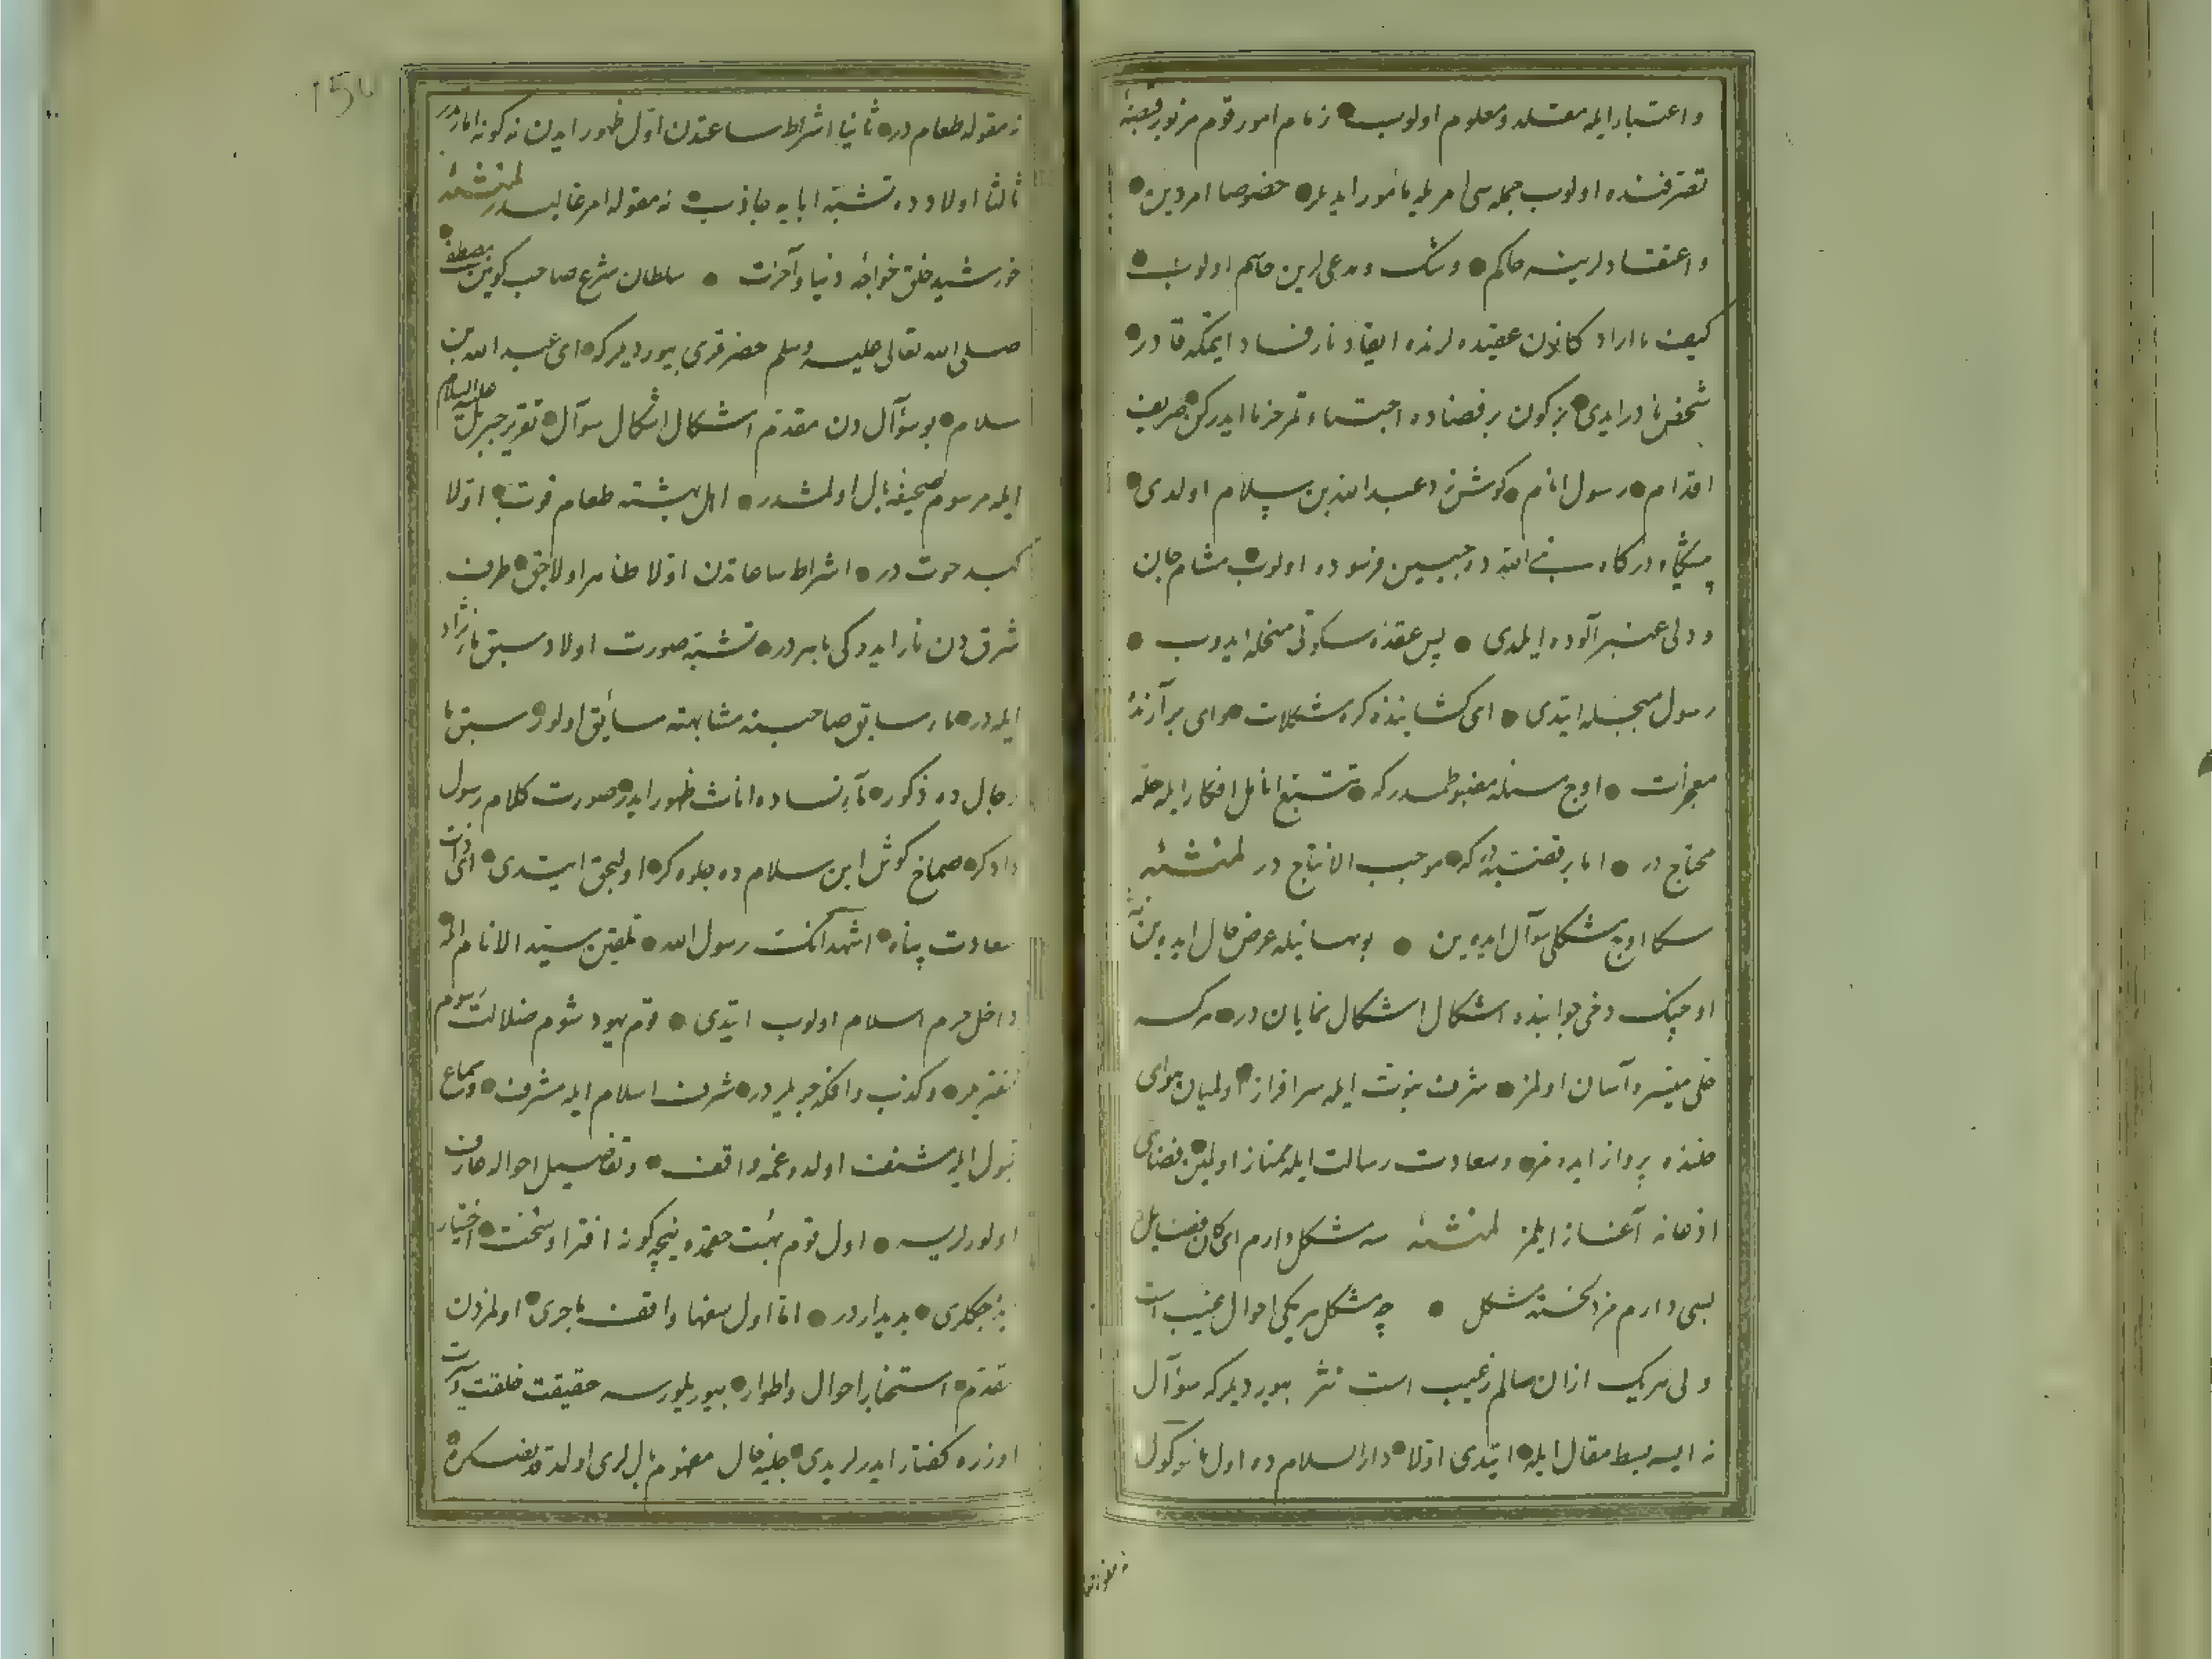 و اعتبار ایله مقلد و معلوم اولوب زمام امور قوم مزبور قبضهٔ
تصرفنده اولوب جمله سی امریله مأمور ایدیلر خصوصا امر دین
و اعتقادلرینه حاکم و شک و مدعی لرین حاسم اولوب
کیف ما اراد کانون عقیده لرنده ایقاد نار فساد ایتمکه قادر
شخص نادر ایدی بر کون بر فضاده اجتناء ثمر خرما ایدرکن صریف
اقدام رسول انام کوش زد عبد الله بن سلام اولدی
پیشگاه درگاه نبی الله ده جبین فرسوده اولوب مشام جان
و دلی عنبر آلوده ایلدی پس عقدهٔ سکوتی منحله ایدوب
رسول مبجله ایتدی ای کشاینده کره مشکلات و ای بر آرندهٔ
معجزات اوچ مسئله مضبوطمدر که تتبع انامل افکار ایله حله
محتاج در اما بر قضیه در که موجب الانتاج در لمنشئه
سکا اوچ مشکلی سؤال ایده ین بو بهانیله عرض حال ایده ین
اوچینک دخی جوابنده اشکال اشکال نمایان در هر کسه
حلی میسر و آسان اولمز شرف نبوت ایله سرافراز اولمیان هوای
حلنده پرواز ایده مز و سعادت رسالت ایله ممتاز اولمین فضای
اذعانه آغاز ایلمز لمنشئه سه مشکل دارم ای کان فضایل
بسی دارم مزد لخسته مشکل چه مشکل هر یکی احوال غیب است
ولی هر یک ازان سالم ز عیب است نثر بیوردیلر که سؤال
نه ایسه بسط مقال ایله ایتدی اولا دار السلام ده اول مأکول
نه مقوله طعام
نه مقوله طعام در ثانیا اشراط ساعتدن اول ظهور ایدن نه کونه اماره در
ثالثا اولاد ده تشبه ابایه جاذب نه مقوله امر غالبدر لمنشئه
خورشید خلق خواجهٔ دنیا و آخرت سلطان شرع صاحب کونین مصطفی
صلی الله تعالی علیه و سلم حضرتلری بیوردیلر که ای عبد الله بن
سلام بو سؤال دن مقدم اشکال اشکال سؤال تقریر جبریل علیه السلام
ایله مرسوم صحیفه بال اولمشدر اهل بهشته طعام قوت اولا
کبد حوت در اشراط ساعاتدن اولا ظاهر اولاجق طرف
شرق دن نار ایدوکی باهر در تشبه صورت اولاد سبق ماء نژاد
ایله در ماء سابق صاحبنه مشابهته سائق اولور سبق ماء
رجال ده ذکور ماء نساده اناث ظهور ایدر صورت کلام رسول
دادکر صماخ کوش ابن سلام ده جلوه کر اولیجق ایتدی ای ذات
سعادت پناه اشهد انک رسول الله تلقین سید الانام ایله
داخل حرم اسلام اولوب ایتدی قوم یهود شوم ضلالت رسوم
مفتریلر و کذب و افکه جریلر در شرف اسلام ایله مشرف و سماع
قبول ایله مشنف اولدوغمه واقف و تفاصیل احواله عارف
اولورلرسه اول قوم بهت حقمده نیجه کونه افترا و سخت اختیار
ایده جکلری بدیدار در اما اول سفها واقف ماجری اولمزدن
مقدم استخبار احوال و اطوار بیوریلورسه حقیقت خلقت و سیرت
اوزره گفتار ایدرلردی جلیهٔ حال مفهوم بال لری اولدقدنصکره